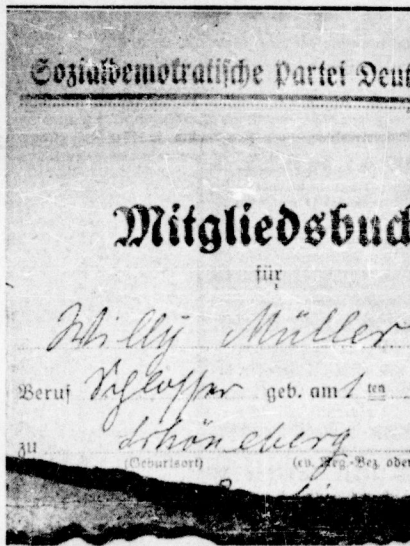 Sozialdemokratische Partei Deut
Mitgliedsbuch
für
Willy Müller
Beruf Schlosser geb. am 1 ten
zu Schöneberg
(Geburtsort) (ev. Reg.-Bez. oder